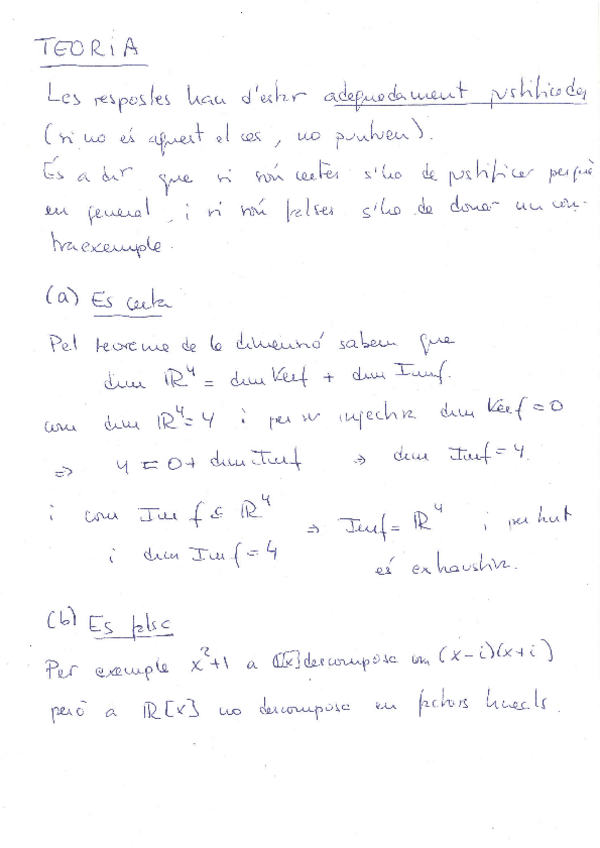 TEORIA
Les respostes han d'estar adequadament justificades
(si no és aquest el cas, no puntuen).
És a dir que si són certes s'ha de justificar perquè
en general, i si són falses s'ha de donar un con-
traexemple.
(a) Es certa
Pel teorema de la dimensió sabem que
dim ℝ⁴ = dim Ker f + dim Im f.
com dim ℝ⁴ = 4 i per ser injectiva dim Ker f = 0
⇒ 4 = 0 + dim Im f ⇒ dim Im f = 4.
i com Im f ⊆ ℝ⁴ ⇒ Im f = ℝ⁴ i per tant
i dim Im f = 4 és exhaustiva.
(b) Es falsa
Per exemple x²+1 a ℂ[x] descomposa com (x-i)(x+i)
però a ℝ[x] no descomposa en factors lineals.